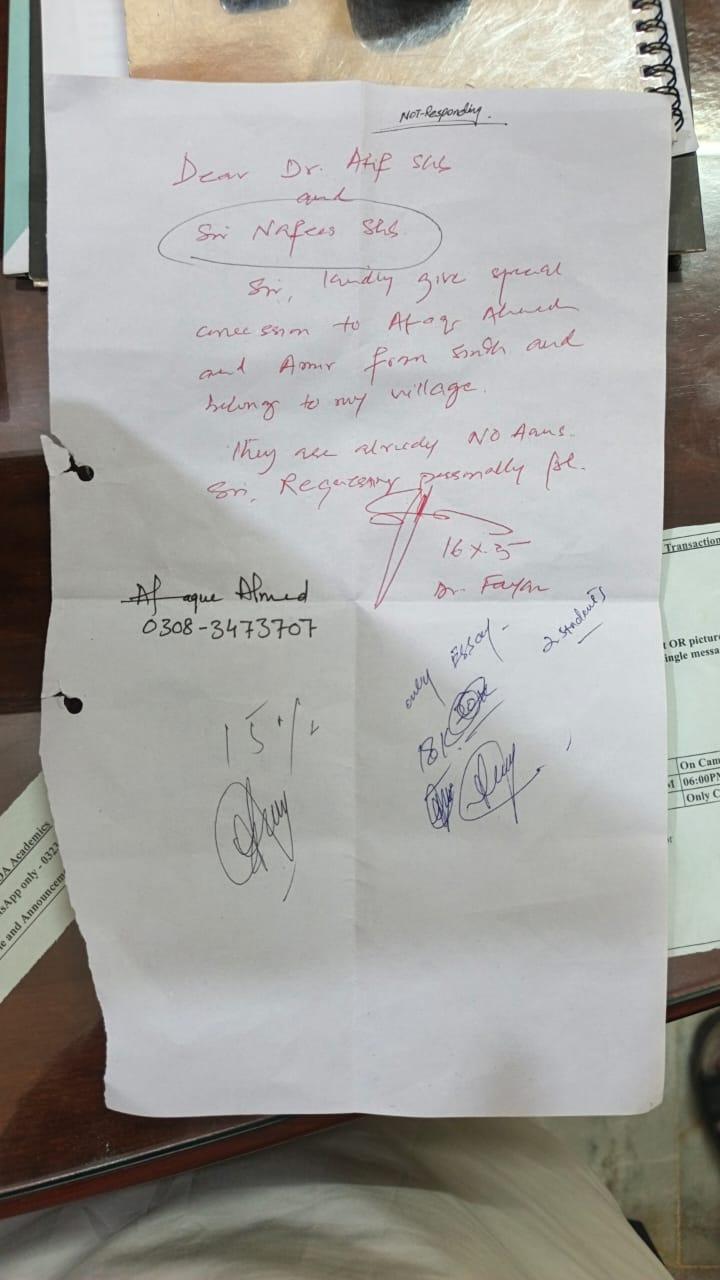 NOT-Responding.
Dear Dr. Atif Shb
and
Sir Nafees Shb.
Sir, kindly give special
concession to Afaqe Ahmed
and Amir from Sindh and
belongs to my village.
They are already NOAans.
Sir, Requesting personally pl.
16 X 25
Dr. Fayaz
Afaque Ahmed
0308-3473707
only Essay -
2 students
18K
15%
Transaction
t OR picture
ingle messa
On Cam
06:00PM
Only C
OA Academics
sApp only - 032
e and Announcem